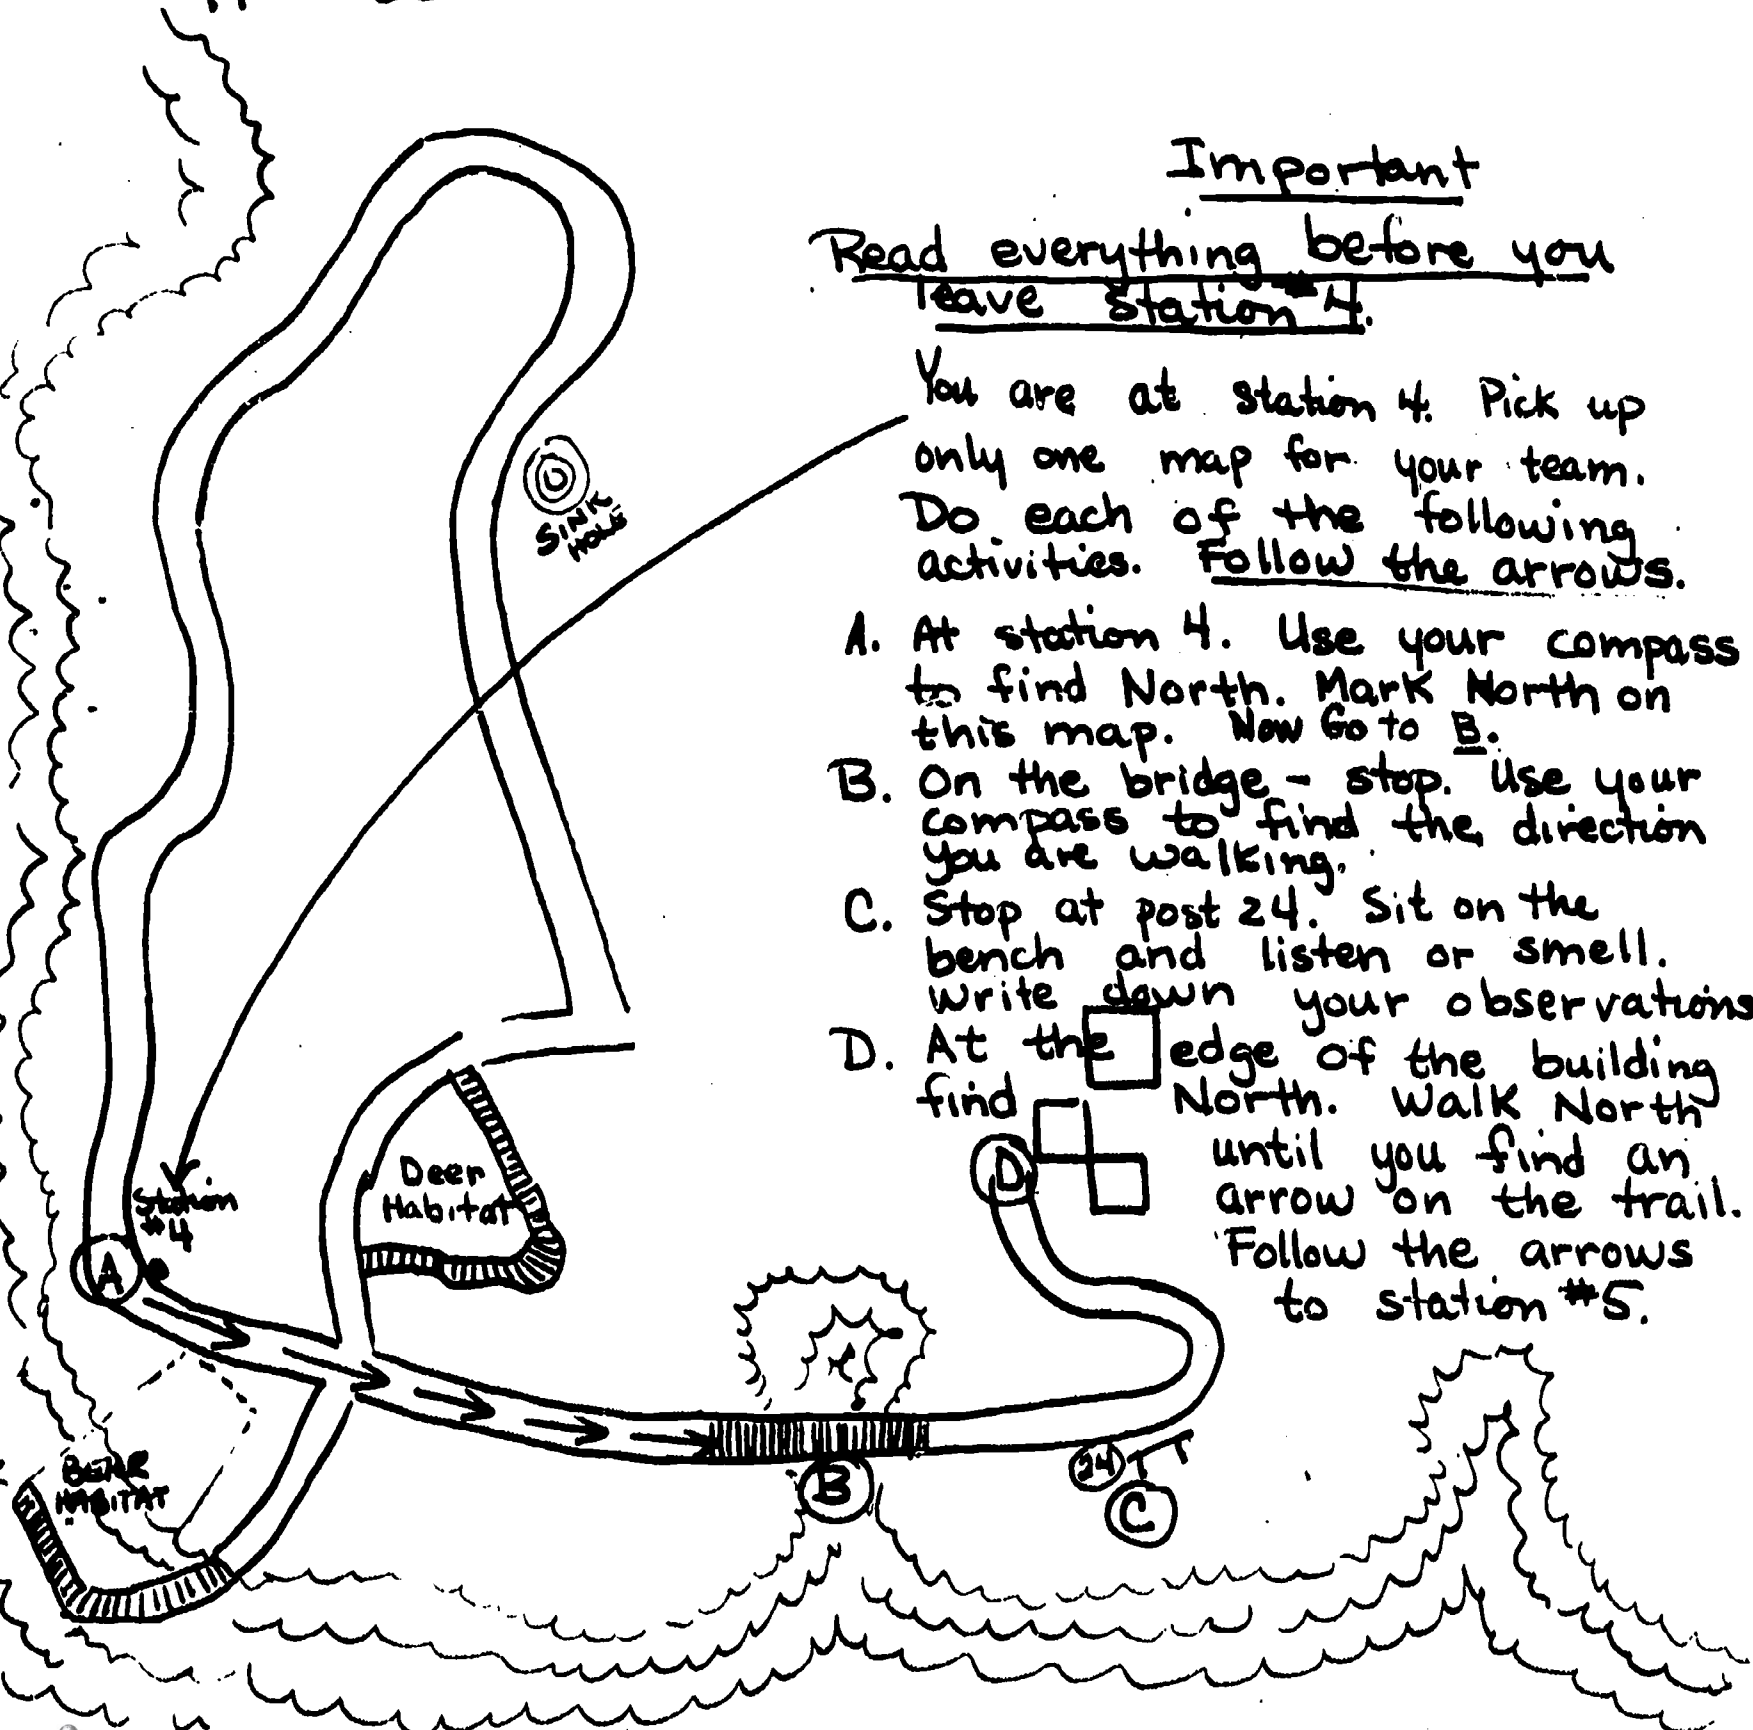 Important
Read everything before you
leave station #4.
You are at station 4. Pick up
only one map for your team.
Do each of the following
activities. Follow the arrows.
A. At station 4. Use your compass
to find North. Mark North on
this map. Now Go to B.
B. On the bridge - stop. Use your
compass to find the direction
you are walking.
C. Stop at post 24. Sit on the
bench and listen or smell.
Write down your observations
D. At the edge of the building
find North. Walk North
until you find an
arrow on the trail.
Follow the arrows
to station #5.
SINK
HOLE
Deer
Habitat
Station
#4
A
D
BEAR
HABITAT
B
24
C